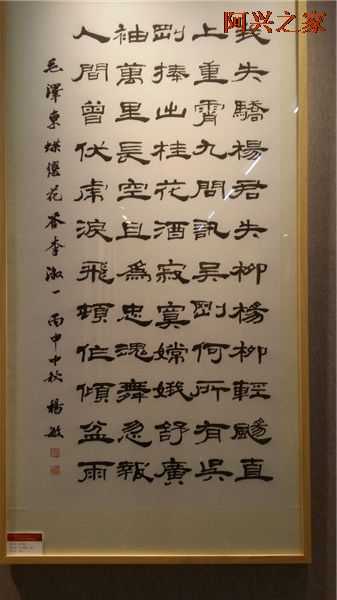 阿兴之家
我失驕楊君失柳楊柳輕颺直
上重霄九問訊吳剛何所有吳
剛捧出桂花酒寂寞嫦娥舒廣
袖萬里長空且爲忠魂舞忽報
人間曾伏虎淚飛頓作傾盆雨
毛澤東蝶戀花答李淑一 丙申中秋 楊敏